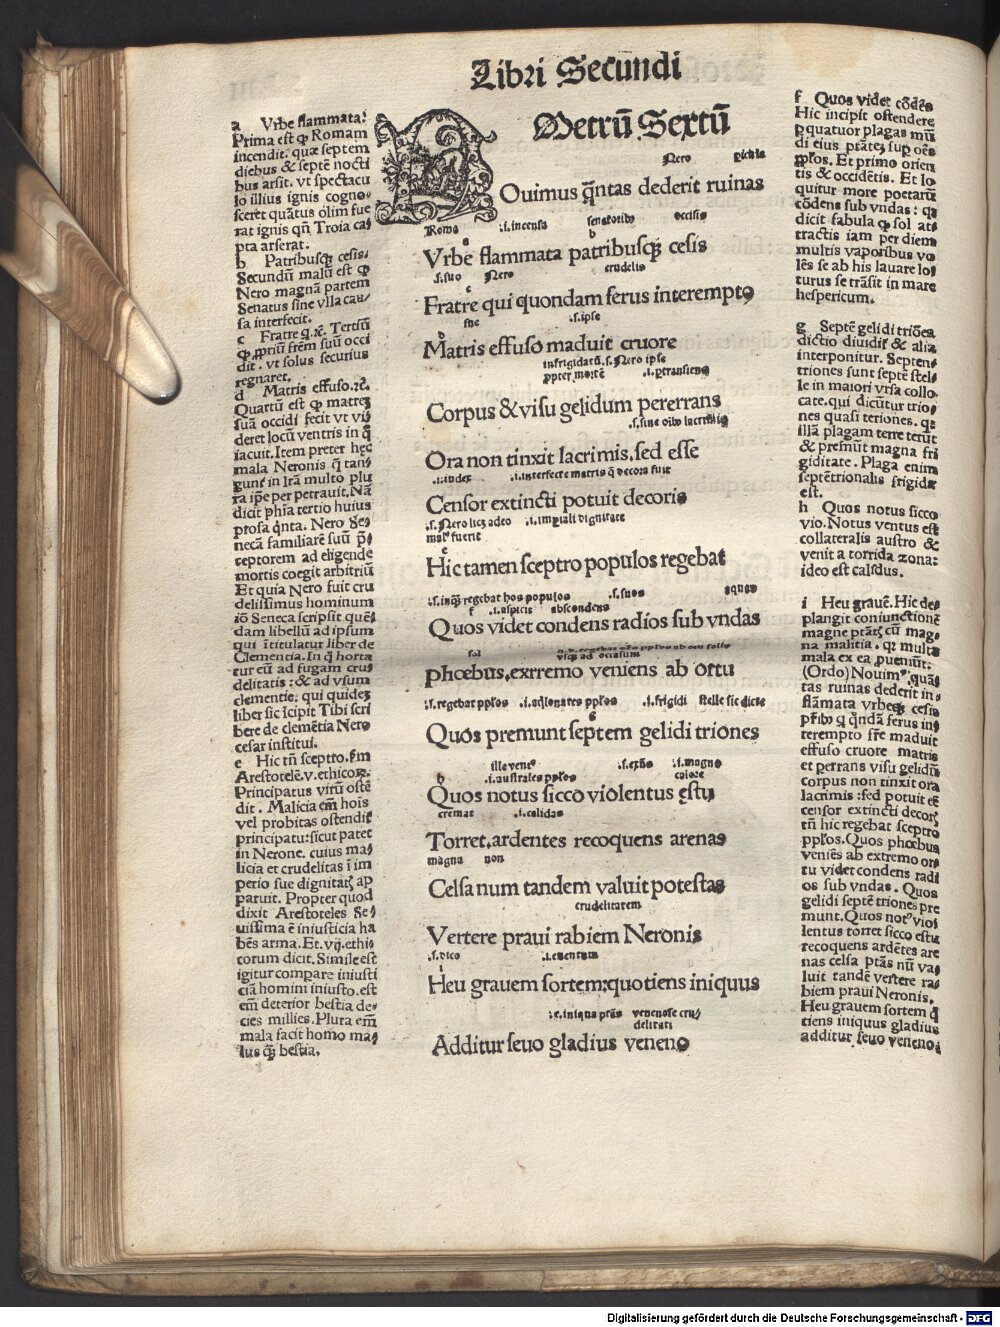 Libri Secundi
Metrũ Sextũ
a Vrbe flammata:
Prima est ꝙ Romam
incendit. quæ septem
diebus & septẽ nocti
bus arsit. vt spectacu
lo illius ignis cogno-
sceret quãtus olim fue
rat ignis qñ Troia ca-
pta arserat.
b Patribusqꝫ cesis.
Secundũ malũ est ꝙ
Nero magnã partem
Senatus sine vlla cau-
sa interfecit.
c Fratre q. ꝛc. Tertiũ
ꝙ ꝓpriũ frẽm suũ occi
dit. vt solus securius
regnaret.
d Matris effuso. ꝛc.
Quartũ est ꝙ matrẽ
suã occidi fecit vt vi-
deret locũ ventris in q̃
iacuit. Item preter hęc
mala Neronis q̃ tan-
gunt in lrã multo plu
ra ip̃e perpetrauit. Nã
dicit ph̃ia tertio huius
prosa q̃nta. Nero Se-
necã familiarẽ suũ p̃-
ceptorem ad eligende
mortis coegit arbitriũ
Et quia Nero fuit cru
delissimus hominum
iõ Seneca scripsit quẽ-
dam libellũ ad ipsum
qui ĩtitulatur liber de
Clementia. In q̃ horta
tur eũ ad fugam cru-
delitatis: & ad vsum
clementie: qui quidez
liber sic ĩcipit Tibi scri
bere de clemẽtia Nero
cesar institui.
e Hic tñ sceptro. ẜm
Arestotelẽ. v. ethicoꝝ.
Principatus virũ ostẽ
dit. Malicia em̃ hoĩs
vel probitas ostendit᷑
principatu: sicut patet
in Nerone. cuius ma-
licia et crudelitas ĩ im
perio sue dignitat᷒ ap
paruit. Propter quod
dixit Arestoteles Se-
uissima ẽ iniusticia ha
bẽs arma. Et. vij. ethi
corum dicit. Simile est
igitur compare iniusti
ciã homini iniusto. est
em̃ deterior bestia de-
cies millies. Plura em̃
mala facit homo ma-
lus q̃ꝫ bestia.
Nero
Ouimus q̃ntas dederit ruinas
Roma .i. incensa senatoribꝰ occisis
Vrbe flammata patribusqꝫ cesis
.s. suo Nero crudelis
Fratre qui quondam ferus interempto
sue .s. ipse
Matris effuso maduit cruore
infrigidatũ. s. Nero ipse
ꝓpter mortẽ .i. ꝑtransiens
Corpus & visu gelidum pererrans
.s. sine oĩbꝰ lacrimis
Ora non tinxit lacrimis, sed esse
.i. iudex .i. interfecte matris q̃ decora fuit
Censor extincti potuit decoris
.s. Nero licꝫ adeo .i. imꝑiali dignitate
malꝰ fuerit
Hic tamen sceptro populos regebat
.s. inq̃ꝫ regebat hos populos .s. suos aquas
.i. aspicit abscondens
Quos videt condens radios sub vndas
sol
phœbus, exrremo veniens ab ortu
.s. regebat ppl̃os .i. aq̃lonares ppl̃os .i. frigidi stelle sic dicte
Quos premunt septem gelidi triones
ille ventꝰ .i. magno
.i. australes ppl̃os calore
Quos notus sicco violentus ęstu
cremat .i. calidas
Torret, ardentes recoquens arenas
magna non
Celsa num tandem valuit potestas
crudelitatem
Vertere praui rabiem Neronis
.s. dico .i. euentum
Heu grauem sortem: quotiens iniquus
.i. iniqua ptãs venenose cru-
delitati
Additur seuo gladius veneno
f Quos videt cõdẽs
Hic incipit ostendere
ꝙ quatuor plagas mũ
di eius ptãtẽ, sup oẽs
ppl̃os. Et primo orien
tis & occidẽtis. Et lo
quitur more poetarũ
cõdens sub vndas: qꝫ
dicit fabula ꝙ sol at-
tractis iam per diem
multis vaporibus vo
lẽs se ab his lauare lo-
turus se trãsit in mare
hespericum.
g Septẽ gelidi triões
dictio diuidit᷑ & alia
interponitur. Septen-
triones sunt septẽ stel-
le in maiori vrsa collo
cate. qui dicũtur trio-
nes quasi teriones. qꝫ
illã plagam terre terũt
& premũt magna fri
giditate. Plaga enim
septẽtrionalis frigida
est.
h Quos notus sicco
vio. Notus ventus est
collateralis austro &
venit a torrida zona:
ideo est calidus.
i Heu grauẽ. Hic de-
plangit coniunctionẽ
magne ptãt᷒ cũ mag-
na malitia. qꝫ multa
mala ex ea ꝓueniũt:
(Ordo) Nouimꝰ quã-
tas ruinas dederit in-
flãmata vrbeqꝫ cesis
pr̃ibꝰ q q̃ndã ferus in-
terempto fr̃e maduit
effuso cruore matris
et perrans visu gelidũ
corpus non tinxit ora
lacrimis: sed potuit eẽ
censor extincti decor᷒
tñ hic regebat sceptro
ppl̃os. Quos phœbus
veniẽs ab extremo or-
tu videt condens radi
os sub vndas. Quos
gelidi septẽ triones pre
munt. Quos notꝰ vio-
lentus torret sicco estu
recoquens ardẽtes are
nas celsa ptãs nũ va-
luit tandẽ vertere ra-
biem praui Neronis.
Heu grauem sortem q̃
tiens iniquus gladius
additur seuo veneno.
Digitalisierung gefördert durch die Deutsche Forschungsgemeinschaft - DFG